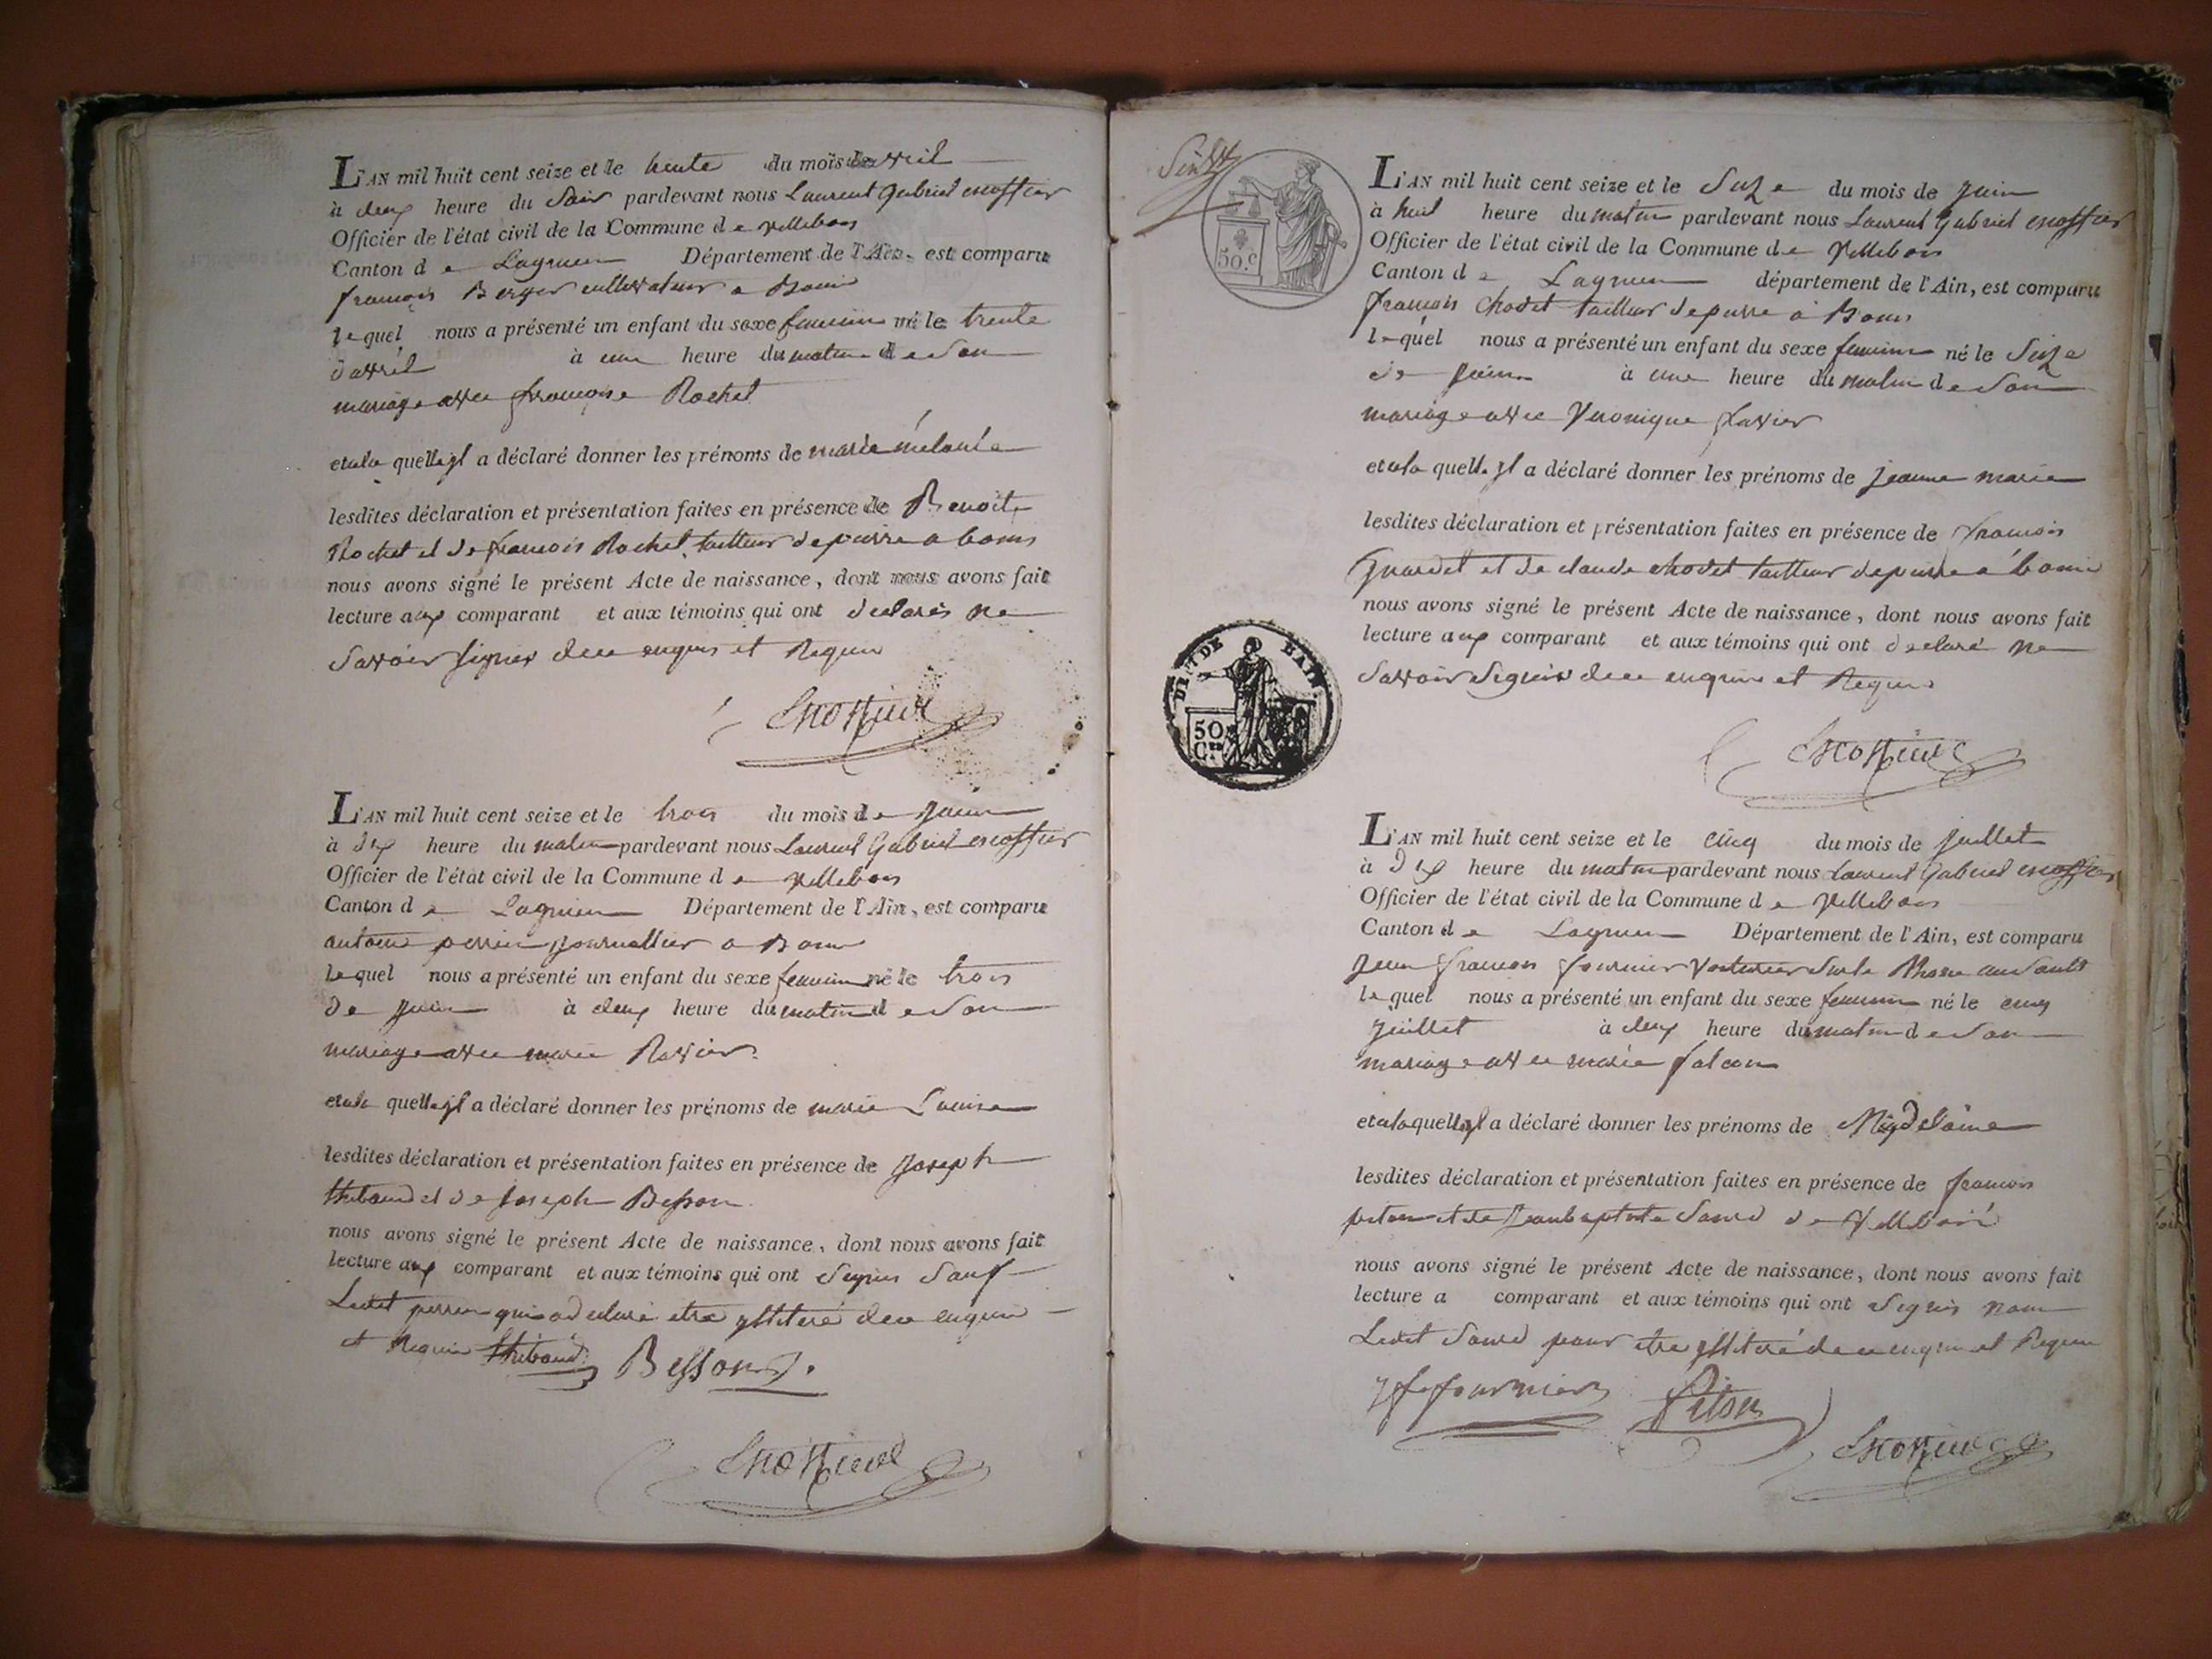 L'AN mil huit cent seize et le trente du mois davril
à deux heure du Soir pardevant nous Laurent Gabriel escoffier
Officier de l'état civil de la Commune de villebois
Canton de Lagnieu Département de l'Ain, est comparu
francois Berger cultivateur a Bouis
lequel nous a présenté un enfant du sexe feminin né le trente
davril à une heure du matin de Son
mariage avec francoise Rochet
et a la quelle jl a déclaré donner les prénoms de marie mélanie
lesdites déclaration et présentation faites en présence de Benoit
Rochet et de francois Rochet tailleur de pierre a bouis
nous avons signé le présent Acte de naissance, dont nous avons fait
lecture aux comparant et aux témoins qui ont declarés ne
Savoir signer de ce enquis et Requis
L'AN mil huit cent seize et le trois du mois de juin
à dix heure du matin pardevant nous Laurent Gabriel escoffier
Officier de l'état civil de la Commune de villebois
Canton de Lagnieu Département de l'Ain, est comparu
antoine perrin journallier a Bouis
lequel nous a présenté un enfant du sexe feminin né le trois
de juin à deux heure du matin de Son
mariage avec marie Ravier
et a la quelle jl a déclaré donner les prénoms de marie Louise
lesdites déclaration et présentation faites en présence de joseph
thibaud et de joseph Besson
nous avons signé le présent Acte de naissance, dont nous avons fait
lecture aux comparant et aux témoins qui ont Signés Sauf
Ledit perrin qui a declaré etre jllitéré de ce enquis
et Requis Thibaud Besson
50.C
L'AN mil huit cent seize et le Seize du mois de juin
à huit heure du matin pardevant nous Laurent Gabriel escoffier
Officier de l'état civil de la Commune de villebois
Canton de Lagnieu département de l'Ain, est comparu
francois chodet tailleur de pierre à Bouis
lequel nous a présenté un enfant du sexe feminin né le Seize
de juin à une heure du matin de Son
mariage avec Veronique
et a la quelle jl a déclaré donner les prénoms de jeanne marie
lesdites déclaration et présentation faites en présence de francois
et de claude chodet tailleur de pierre à bouis
nous avons signé le présent Acte de naissance, dont nous avons fait
lecture aux comparant et aux témoins qui ont declaré ne
Savoir Signer de ce enquis et Requis
50
Cmes
L'AN mil huit cent seize et le cinq du mois de juillet
à Dix heure du matin pardevant nous Laurent Gabriel escoffier
Officier de l'état civil de la Commune de villebois
Canton de Lagnieu Département de l'Ain, est comparu
jean francois fournier voiturier sur le Rhone au Sault
lequel nous a présenté un enfant du sexe feminin né le cinq
juillet à deux heure du matin de Son
mariage avec marie falcon
et a laquelle jl a déclaré donner les prénoms de Magdelaine
lesdites déclaration et présentation faites en présence de francois
piton et de jean baptiste de Villebois
nous avons signé le présent Acte de naissance, dont nous avons fait
lecture a comparant et aux témoins qui ont Signés non
Ledit pour etre jllitéré de ce enquis et Requis
jf fournier Piton